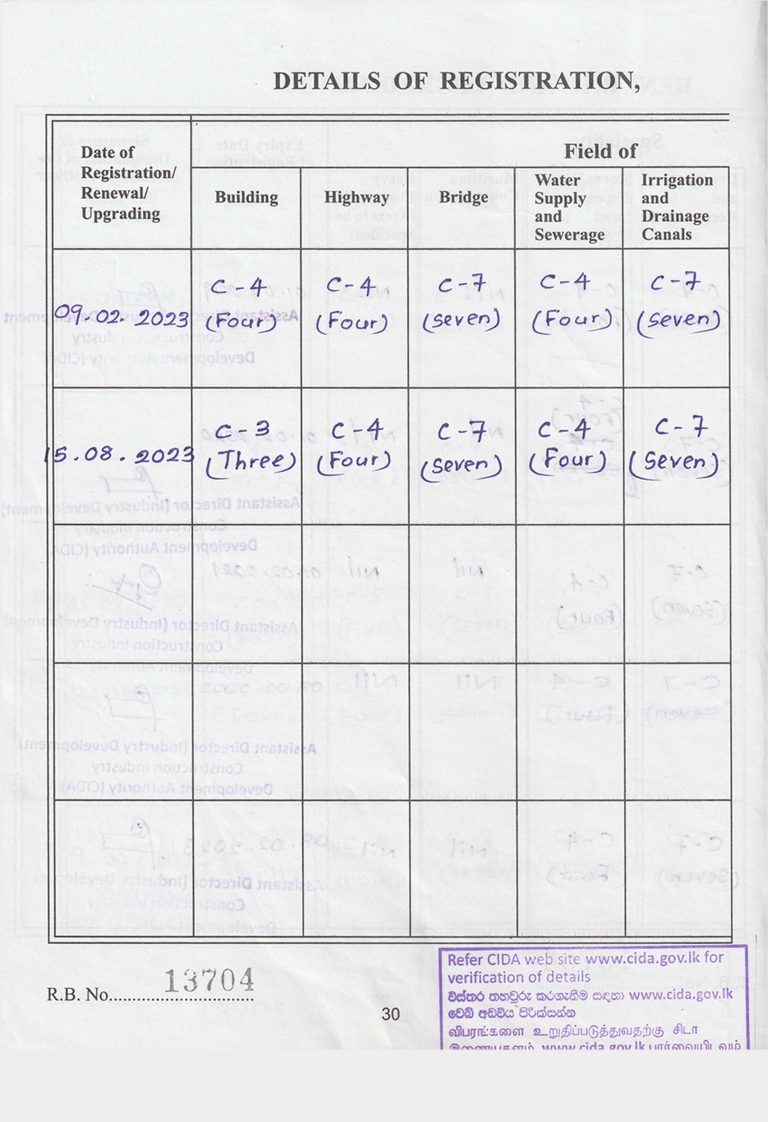 DETAILS OF REGISTRATION,
Date of
Registration/
Renewal/
Upgrading
Field of
Building
Highway
Bridge
Water
Supply
and
Sewerage
Irrigation
and
Drainage
Canals
09.02.2023
C-4
(Four)
C-4
(Four)
C-7
(Seven)
C-4
(Four)
C-7
(Seven)
15.08.2023
C-3
(Three)
C-4
(Four)
C-7
(Seven)
C-4
(Four)
C-7
(Seven)
R.B. No. 13704
30
Refer CIDA web site www.cida.gov.lk for
verification of details
විස්තර තහවුරු කරගැනීම සඳහා www.cida.gov.lk
වෙබ් අඩවිය පිරික්සන්න
விபரங்களை உறுதிப்படுத்துவதற்கு சிடா
இணையதளம் www.cida.gov.lk பார்வையிடவும்